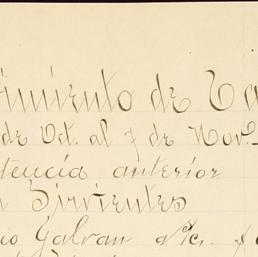 imiento de Ca
de Oct. al 7 de Nov.
tencia anterior
Sirvientes
io Galvan a/c. $